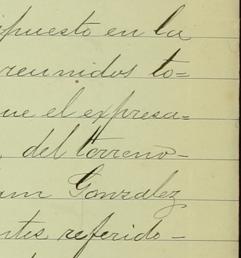 ipuesto en la
reunidos to=
ue el expresa=
del terreno-
Gonzalez
ntes referido-